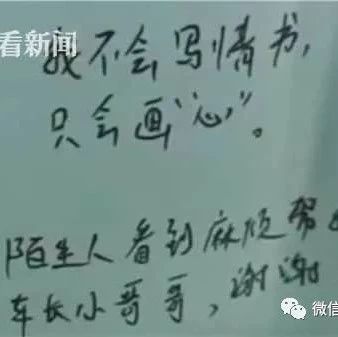 看新闻
我不会写情书,
只会画“心”。
陌生人看到麻烦帮
车长小哥哥,谢谢
微信